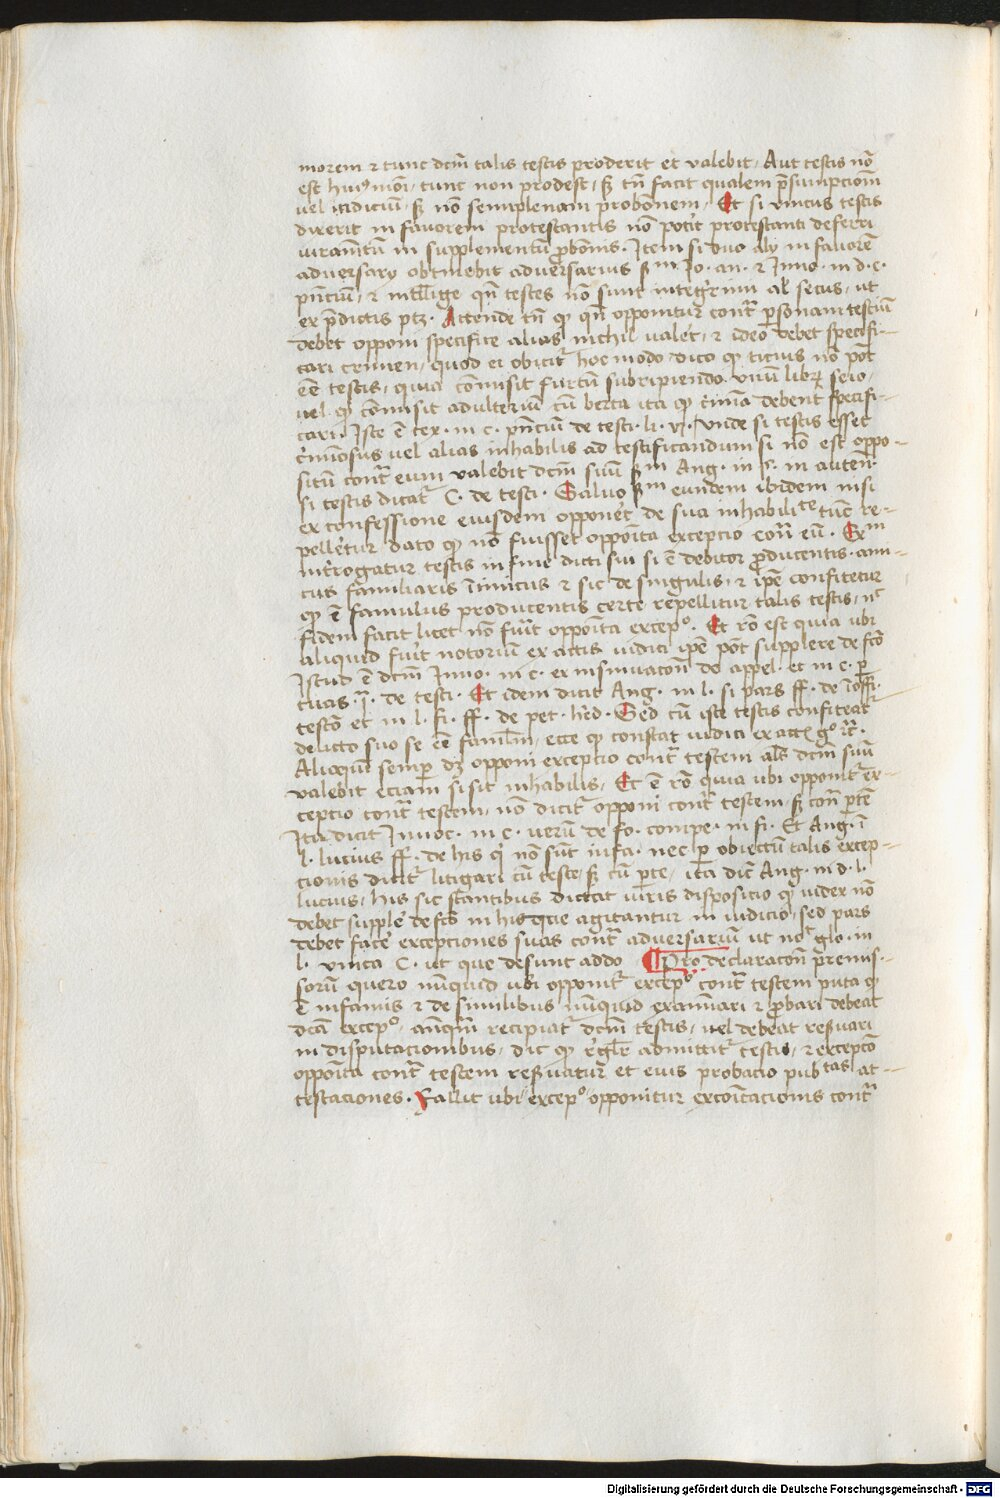 morem ⁊ tunc dcm̄ talis testis proderit et valebit / Aut testis nō
est huiꝰmōi / tunc non prodest / sꝫ tn̄ facit qualem p̄sumpcion̄
uel indiciū / sꝫ nō semiplenam probōnem / Et si vnicus testis
dixerit in fauorem protestantis nō potit̉ protestanti deferri
iuramtū in supplementū ꝓbōnis · Item si duo alij in fauorē
adversarij obtinebit adversarius sꝫm Jo · an · ⁊ Inno · in d · c ·
pn̄ciū / ⁊ intll̄ige qn̄ testes nō sunt integrimi al̄ secus / ut
ex p̄dictis ptꝫ · Attende tn̄ ꝙ qn̄ opponitur contͣ ꝑsonam testiū
debet opponi specifice alias nichil valet / ⁊ ideo debet specifi-
cari crimen / quod ei obicitr̉ hoc modo dico ꝙ ticius nō pōt
eē testis / quia cōmisit furtū subripiendo vnū librꝫ seio /
uel ꝙ cōmisit adulteriū cū berta ita ꝙ c̉mīa debent̉ specifi-
cari · Iste ē tex · in c · pn̄ciū de testi · li · vj · Unde si testis esset
c̉minosus vel alias inhabilis ad testificandum si nō est oppo-
situ contͣ eum valebit dcm̄ suū sꝫm Ang · in § · in auten̄ ·
si testis dicatr̉ C · de testi · Saluo sꝫm eundem ibidem nisi
ex confessione eiusdem opponet̉ de sua inhabilite tūc re-
pelletur dato ꝙ nō fuisset oppōita exceptio contͣ eū · Exm
interrogatur testis in fine dicti sui si ē debitor ꝓducentis · ami-
cus familiaris inimicus ⁊ sic de singulis / ⁊ ip̄e confitetur
ꝙ ē famulus producentis certe repellitur talis testis / nc
fidem facit licet nō fuit̉ oppōita excepº · Et rō est quia ubi
aliquid fuit̉ notoriū ex actis iudici ip̄e pōt supplere de fcō
Istud ē dcm̄ Inno · in c · ex insinuatōn̄ de appel · et in c · ꝑ
tuas · de testi · Et idem dicit Ang · in l · si pars ff · de ioffi ·
testō et in l · fi · ff · de pet · hēd · Sed cū iste testis confiteatr̉
delicto suo se eē faml̄m / ecce ꝙ constat iudici ex act gº ⁊c̉ ·
Alioqn̄ semꝑ dꝫ opponi exceptio contͣ testem al̄s dcm̄ suū
valebit eciam si sit inhabilis / Et ē rō quia ubi opponitr̉ ex-
ceptio contͣ testem / nō dicitr̉ opponi contͣ testem / sꝫ contͣ ꝑtē
Ita dicit Innoc · in c · verū de fo · compe · in fi · Et Ang · ī
l · lucius ff · de his qi nō sūt infa · nec ꝑ obiectū talis excep-
tionis dicitr̉ litigari cū teste / sꝫ cū ꝑte / ita dic̄ Ang · in d · l ·
lucius / his sic stantibus dictat iuris dispositio ꝙ iudex nō
debet supplē de fcō in his que agitantur in iudicio / sed pars
debet facē exceptiones suas contͣ adversariū ut noͭ glo · in
l · vnica C · ut que desunt addo ¶ Pro declaracōn̄ premis-
sorū quero nūquid ubi opponitr̉ excepº contͣ testem puta ꝙ
ē infamis ⁊ de similibus nūquid examinari ⁊ ꝓbari debeat
dcā excepº / anteqm̄ recipiatr̉ dcm̄ testis / uel debeat res̉uari
in disputacionibus / dic ꝙ r̉glr̄ admittitr̉ testis / ⁊ exceptō
oppōita contͣ testem res̉uatur et eius probacio pubtas at-
testaciones · Fallit ubi excepº opponitur excōicacionis contͣ
Digitalisierung gefördert durch die Deutsche Forschungsgemeinschaft · DFG